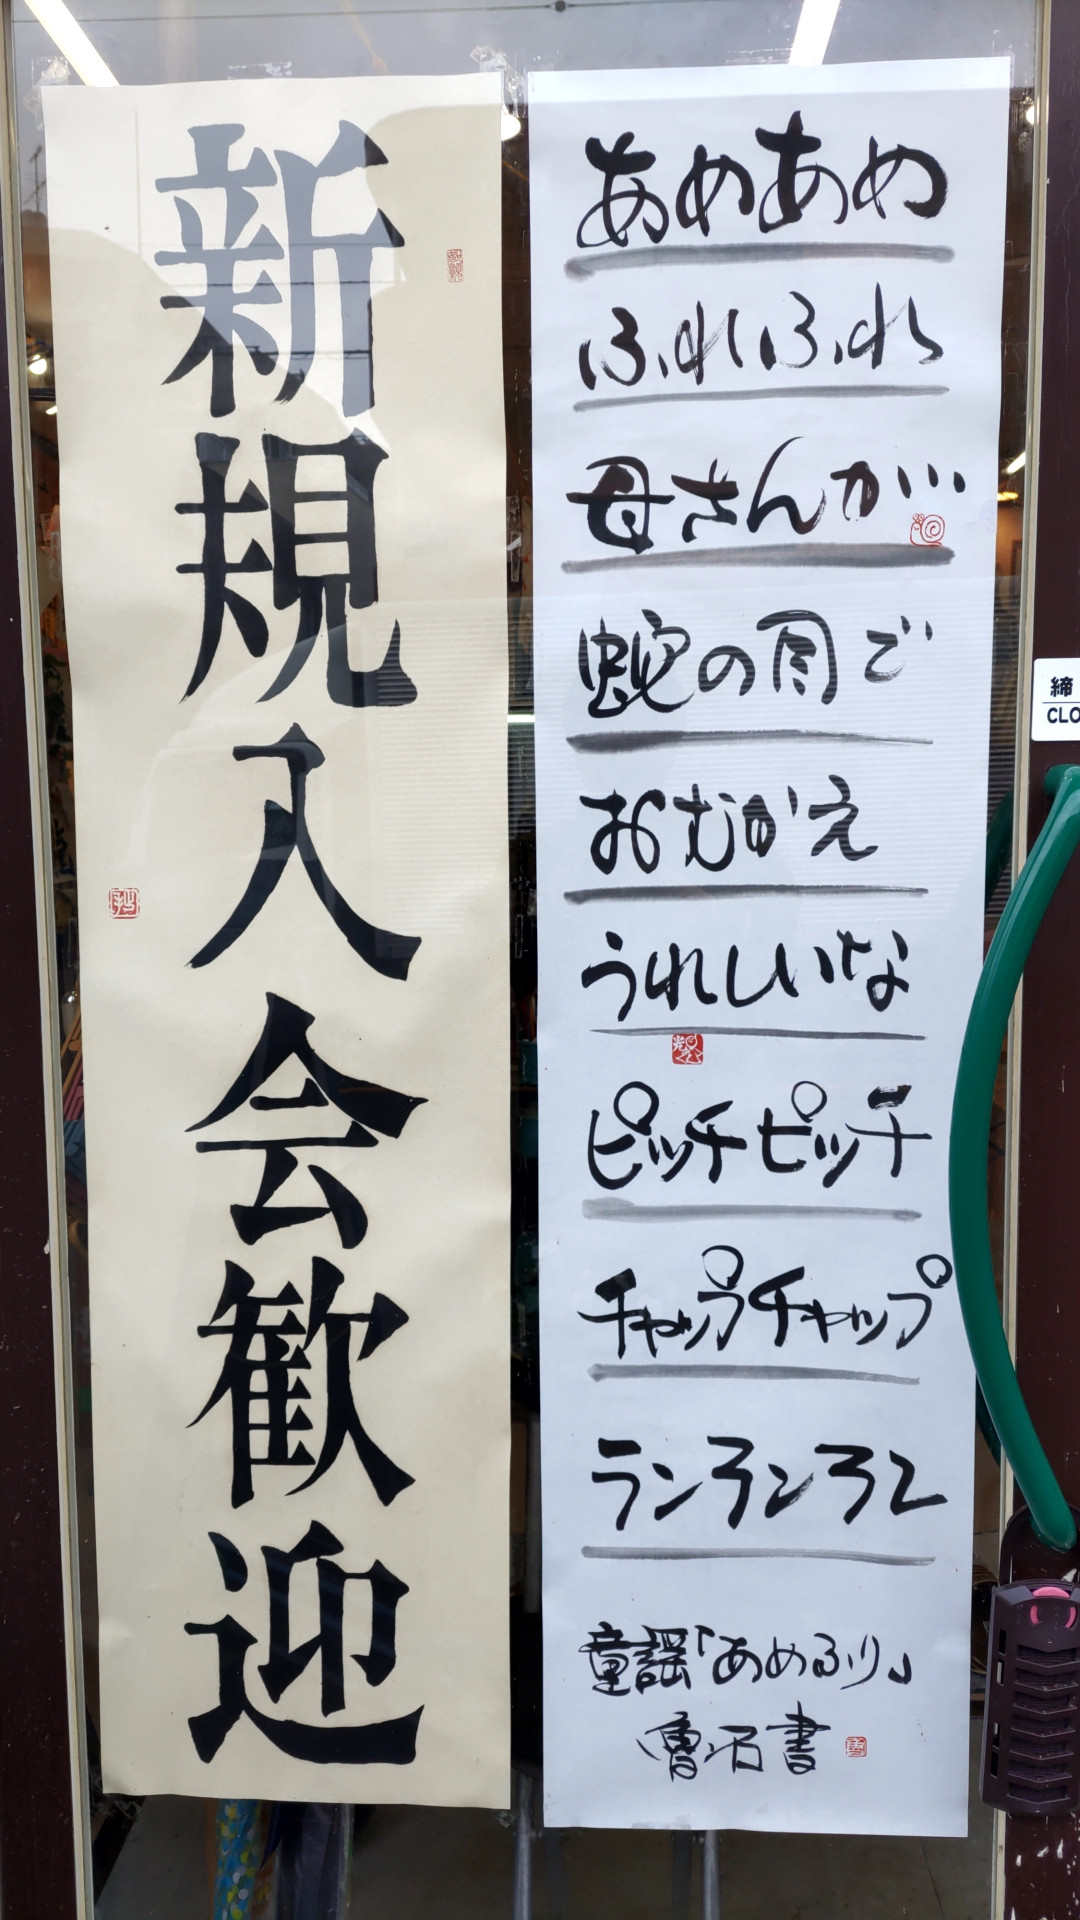 新規入会歓迎
あめあめ
ふれふれ
母さんが…
蛇の目で
おむかえ
うれしいな
ピッチピッチ
チャップチャップ
ランランラン
童謡「あめふり」
魯石書
締
CLO